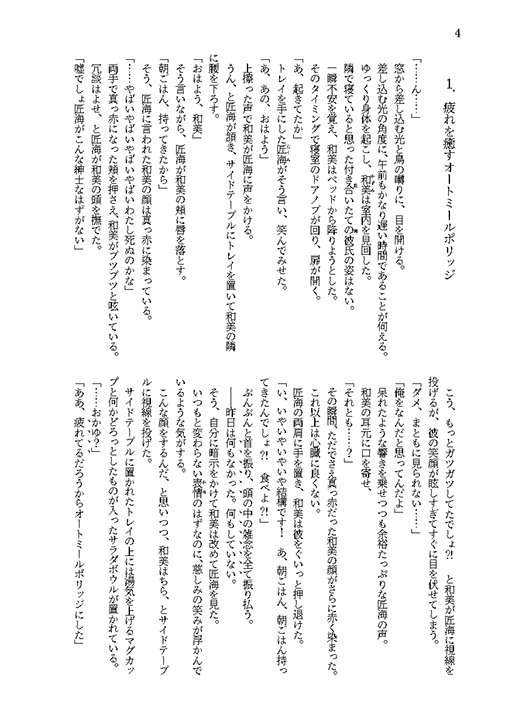 4
1．疲れを癒すオートミールポリッジ
「……ん……」
窓から差し込む光と鳥の囀りに、目を開ける。
差し込む光の角度に、午前もかなり遅い時間であることが伺える。
ゆっくり身体を起こし、和美は室内を見回した。
隣で寝ていると思った付き合いたての彼氏の姿はない。
一瞬不安を覚え、和美はベッドから降りようとした。
そのタイミングで寝室のドアノブが回り、扉が開く。
「あ、起きてたか」
トレイを手にした匠海がそう言い、笑んでみせた。
「あ、あの、おはよう」
上擦った声で和美が匠海に声をかける。
うん、と匠海が頷き、サイドテーブルにトレイを置いて和美の隣
に腰を下ろす。
「おはよう、和美」
そう言いながら、匠海が和美の頬に唇を落とす。
「朝ごはん、持ってきたから」
そう、匠海に言われた和美の顔は真っ赤に染まっている。
「……やばいやばいやばいやばいわたし死ぬのかな」
両手で真っ赤になった頬を押さえ、和美がブツブツと呟いている。
冗談はよせ、と匠海が和美の頭を撫でた。
「嘘でしょ匠海がこんな紳士なはずがない」
こう、もっとガツガツしてたでしょ?!　と和美が匠海に視線を
投げけるが、彼の笑顔が眩しすぎてすぐに目を伏せてしまう。
「ダメ、まともに見られない……」
「俺をなんだと思ってんだよ」
呆れたような響きを乗せつつも余裕たっぷりな匠海の声。
和美の耳元に口を寄せ、
「それとも……？」
その瞬間、ただでさえ真っ赤だった和美の顔がさらに赤く染まった。
これ以上は心臓に良くない。
匠海の両肩に手を置き、和美は彼をぐいっと押し退けた。
「い、いやいやいやいや結構です！　あ、朝ごはん、朝ごはん持っ
てきたんでしょ?!　食べよ?!」
ぶんぶんと首を振り、頭の中の雑念を全て振り払う。
――昨日は何もなかった。何もしていない。
そう、自分に暗示をかけて和美は改めて匠海を見た。
いつもと変わらない表情のはずなのに、慈しみの笑みが浮かんで
いるような気がする。
こんな顔をするんだ、と思いつつ、和美はちら、とサイドテーブ
ルに視線を投げた。
サイドテーブルに置かれたトレイの上には湯気を上げるマグカッ
プと何かどろっとしたものが入ったサラダボウルが置かれている。
「……おかゆ？」
「ああ、疲れてるだろうからオートミールポリッジにした」